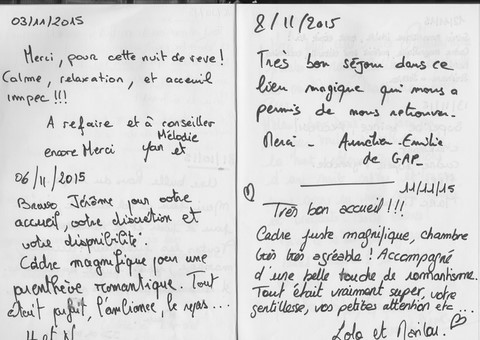 03/11/2015
Merci, pour cette nuit de reve !
Calme, relaxation, et acceuil
impec !!!
A refaire et à conseiller
Mélodie
encore Merci Yan et
06/11/2015
Bravo Jérôme pour votre
accueil, votre discretion et
votre disponibilité.
Cadre magnifique pour une
parenthèse romantique. Tout
était parfait, l'ambiance, le repas...
8/11/2015
Très bon séjour dans ce
lieu magique qui nous a
permis de nous retrouver.
Merci - Aurélien - Emilie
de GAP
11/11/15
Très bon accueil !!!
Cadre juste magnifique, chambre
très très agréable ! Accompagné
d'une belle touche de romantisme.
Tout était vraiment super, votre
gentillesse, vos petites attention etc ...
Lola et